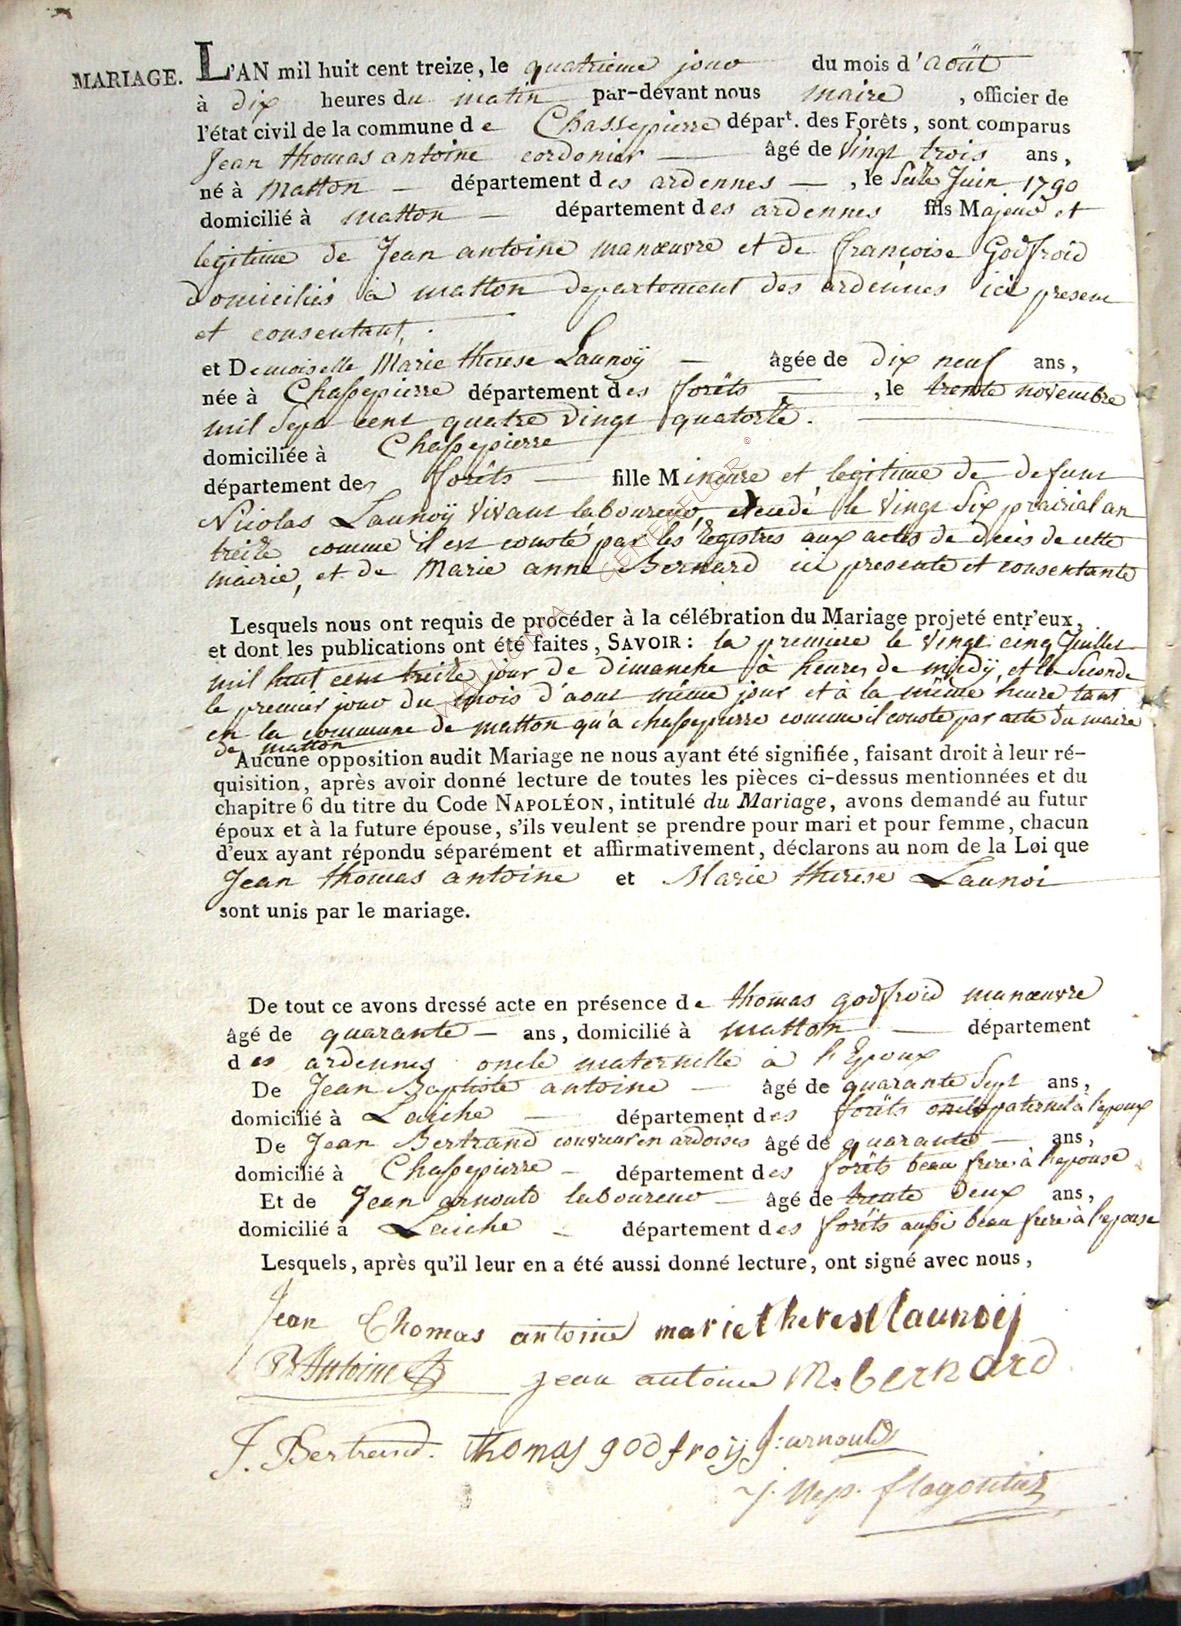 MARIAGE. L'AN mil huit cent treize, le quatrieme jour du mois d'Août
à dix heures du matin par-devant nous maire , officier de
l'état civil de la commune de Chassepierre départ. des Forêts, sont comparus
Jean thomas antoine cordonier âgé de vingt trois ans,
né à Matton département des ardennes , le Juin 1790
domicilié à matton département des ardennes fils Majeur et
legitime de Jean antoine manœuvre et de françoise Godfroid
domiciliés à matton departement des ardennes ici present
et consentant,
et Demoiselle Marie therese Launoÿ âgée de dix neuf ans,
née à Chassepierre département des forêts , le trente novembre
mil Sept cent quatre vingt quatorze.
domiciliée à Chassepierre
département des forêts fille Mineure et legitime de defunt
Nicolas Launoÿ vivant laboureur decedé le vingt Six prairial an
treize comme il est consté par les registres aux actes de décès de cette
mairie, et de Marie anne Bernard ici presente et consentante
Lesquels nous ont requis de procéder à la célébration du Mariage projeté entr'eux,
et dont les publications ont été faites, SAVOIR : la premiere le vingt cinq Juillet
mil huit cent treize jour de dimanche à heures de midÿ, et la Seconde
le premier jour du mois d'aout même jour et à la même heure tant
en la commune de matton qu'a chassepierre comme il conste par acte du maire
de matton
Aucune opposition audit Mariage ne nous ayant été signifiée, faisant droit à leur ré-
quisition, après avoir donné lecture de toutes les pièces ci-dessus mentionnées et du
chapitre 6 du titre du Code NAPOLÉON, intitulé du Mariage, avons demandé au futur
époux et à la future épouse, s'ils veulent se prendre pour mari et pour femme, chacun
d'eux ayant répondu séparément et affirmativement, déclarons au nom de la Loi que
Jean thomas antoine et Marie therese Launoi
sont unis par le mariage.
De tout ce avons dressé acte en présence de thomas godfroid manœuvre
âgé de quarante ans, domicilié à matton département
des ardennes oncle maternelle à l'Epoux
De Jean Baptiste antoine âgé de quarante Sept ans,
domicilié à Laiche département des forêts oncle paternel à l'epoux
De Jean Bertrand couvreur en ardoises âgé de quarante ans,
domicilié à Chassepierre département des forêts beau frere à l'epouse
Et de Jean arnould laboureur âgé de trente Deux ans,
domicilié à Laiche département des forêts aussi beau frere à l'epouse
Lesquels, après qu'il leur en a été aussi donné lecture, ont signé avec nous,
Jean Thomas antoine marie therese launoij
Antoine jean antoine M. bernard
J. Bertrand. thomas godfroij J: arnould
J. Nep. flagontier